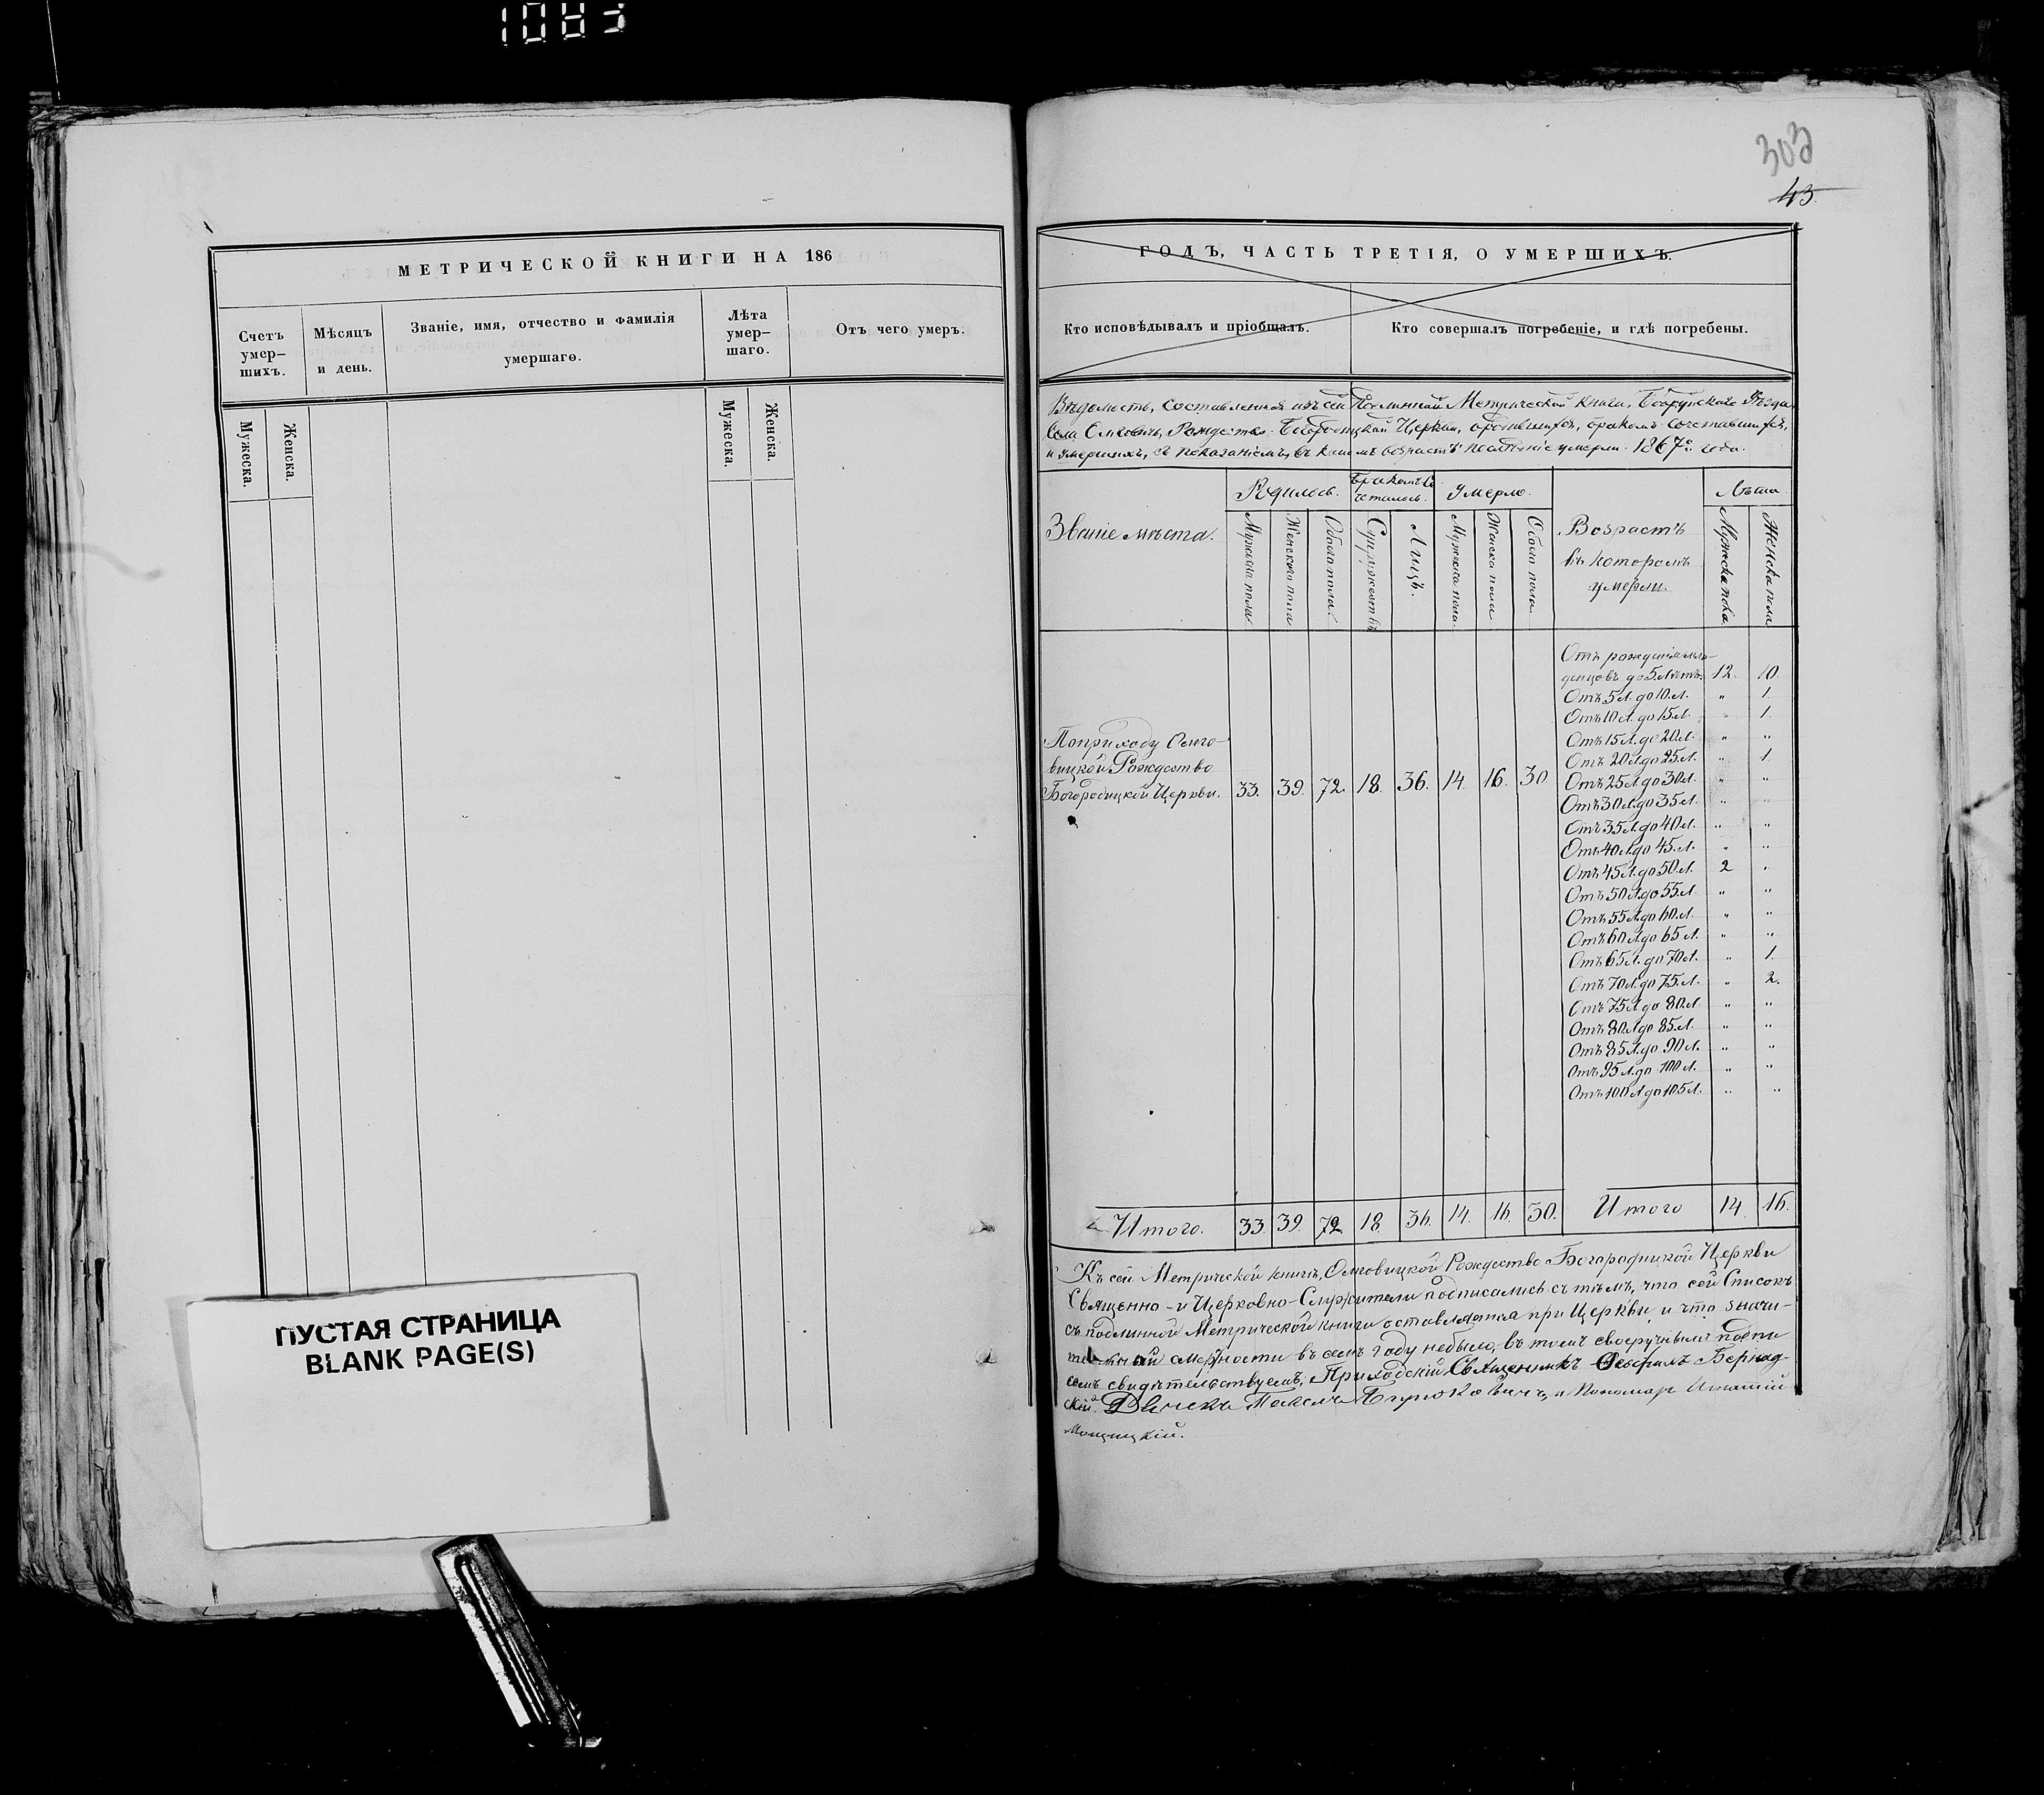 1083
303
43.
МЕТРИЧЕСКОЙ КНИГИ НА 186
Счетъ умер–шихъ.
Мѣсяцъ и день.
Званіе, имя, отчество и фамилія умершаго.
Лѣта умер–шаго.
Отъ чего умеръ.
Мужеска.
Женска.
Мужеска.
Женска.
ПУСТАЯ СТРАНИЦА
BLANK PAGE(S)
ГОДЪ, ЧАСТЬ ТРЕТІЯ, О УМЕРШИХЪ.
Кто исповѣдывалъ и пріобщалъ.
Кто совершалъ погребеніе, и гдѣ погребены.
Вѣдомость, составленная изъ сей Подлинной Метрической книги, Бобруйскаго Уѣзда
Села Рождество-Богородицкой Церкви, бракомъ сочетавшихся,
и умершихъ, съ показаніемъ, въ какомъ возрастѣ послѣдніе умерли. 1867го года.
Званіе мѣста.
Родилось.
Бракомъ сочеталось.
Умерло.
Возрастъ въ которомъ умерли.
Лѣта.
Мужеска пола
Женскаго пола
Обоего пола.
Супружествъ
Лицъ.
Мужеска пола.
Женска пола
Обоего пола.
Мужеска пола
Женска пола
По приходу
вицкой Рождество
Богородицкой Церкви. 33. 39. 72. 18. 36. 14. 16. 30
Отъ рожденія мла–
денцовъ до 5 лѣтъ. 12. 10.
Отъ 5 л. до 10 л. „ 1.
Отъ 10 л. до 15 л. „ 1.
Отъ 15 л. до 20 л. „ „
Отъ 20 л. до 25 л. „ 1.
Отъ 25 л. до 30 л. „ „
Отъ 30 л. до 35 л. „ „
Отъ 35 л. до 40 л. „ „
Отъ 40 л. до 45. л. „ „
Отъ 45 л. до 50. л. 2 „
Отъ 50 л. до 55 л. „ „
Отъ 55 л. до 60. л. „ „
Отъ 60 л. до 65 л. „ „
Отъ 65 л. до 70 л. „ 1.
Отъ 70 л. до 75. л. „ 2.
Отъ 75 л. до 80. л. „ „
Отъ 80 л. до 85 л. „ „
Отъ 85 л. до 90 л. „ „
Отъ 95 л. до 100 л. „ „
Отъ 100 л. до 105 л. „ „
Итого. 33. 39. 72 18 36. 14. 16. 30. Итого 14. 16.
Къ сей Метрической книгѣ, Рождество-Богородицкой Церкви
Священно-и Церковно-Служители подписались съ тѣмъ, что сей Списокъ
съ подлинной Метрической книги оставляется при Церкви и что значи–
смертности въ семъ году небыло, въ томъ своеручнымъ подпи
семъ свидѣтельствуемъ; Приходскій Священникъ
скій. и Пономарь Игнатій